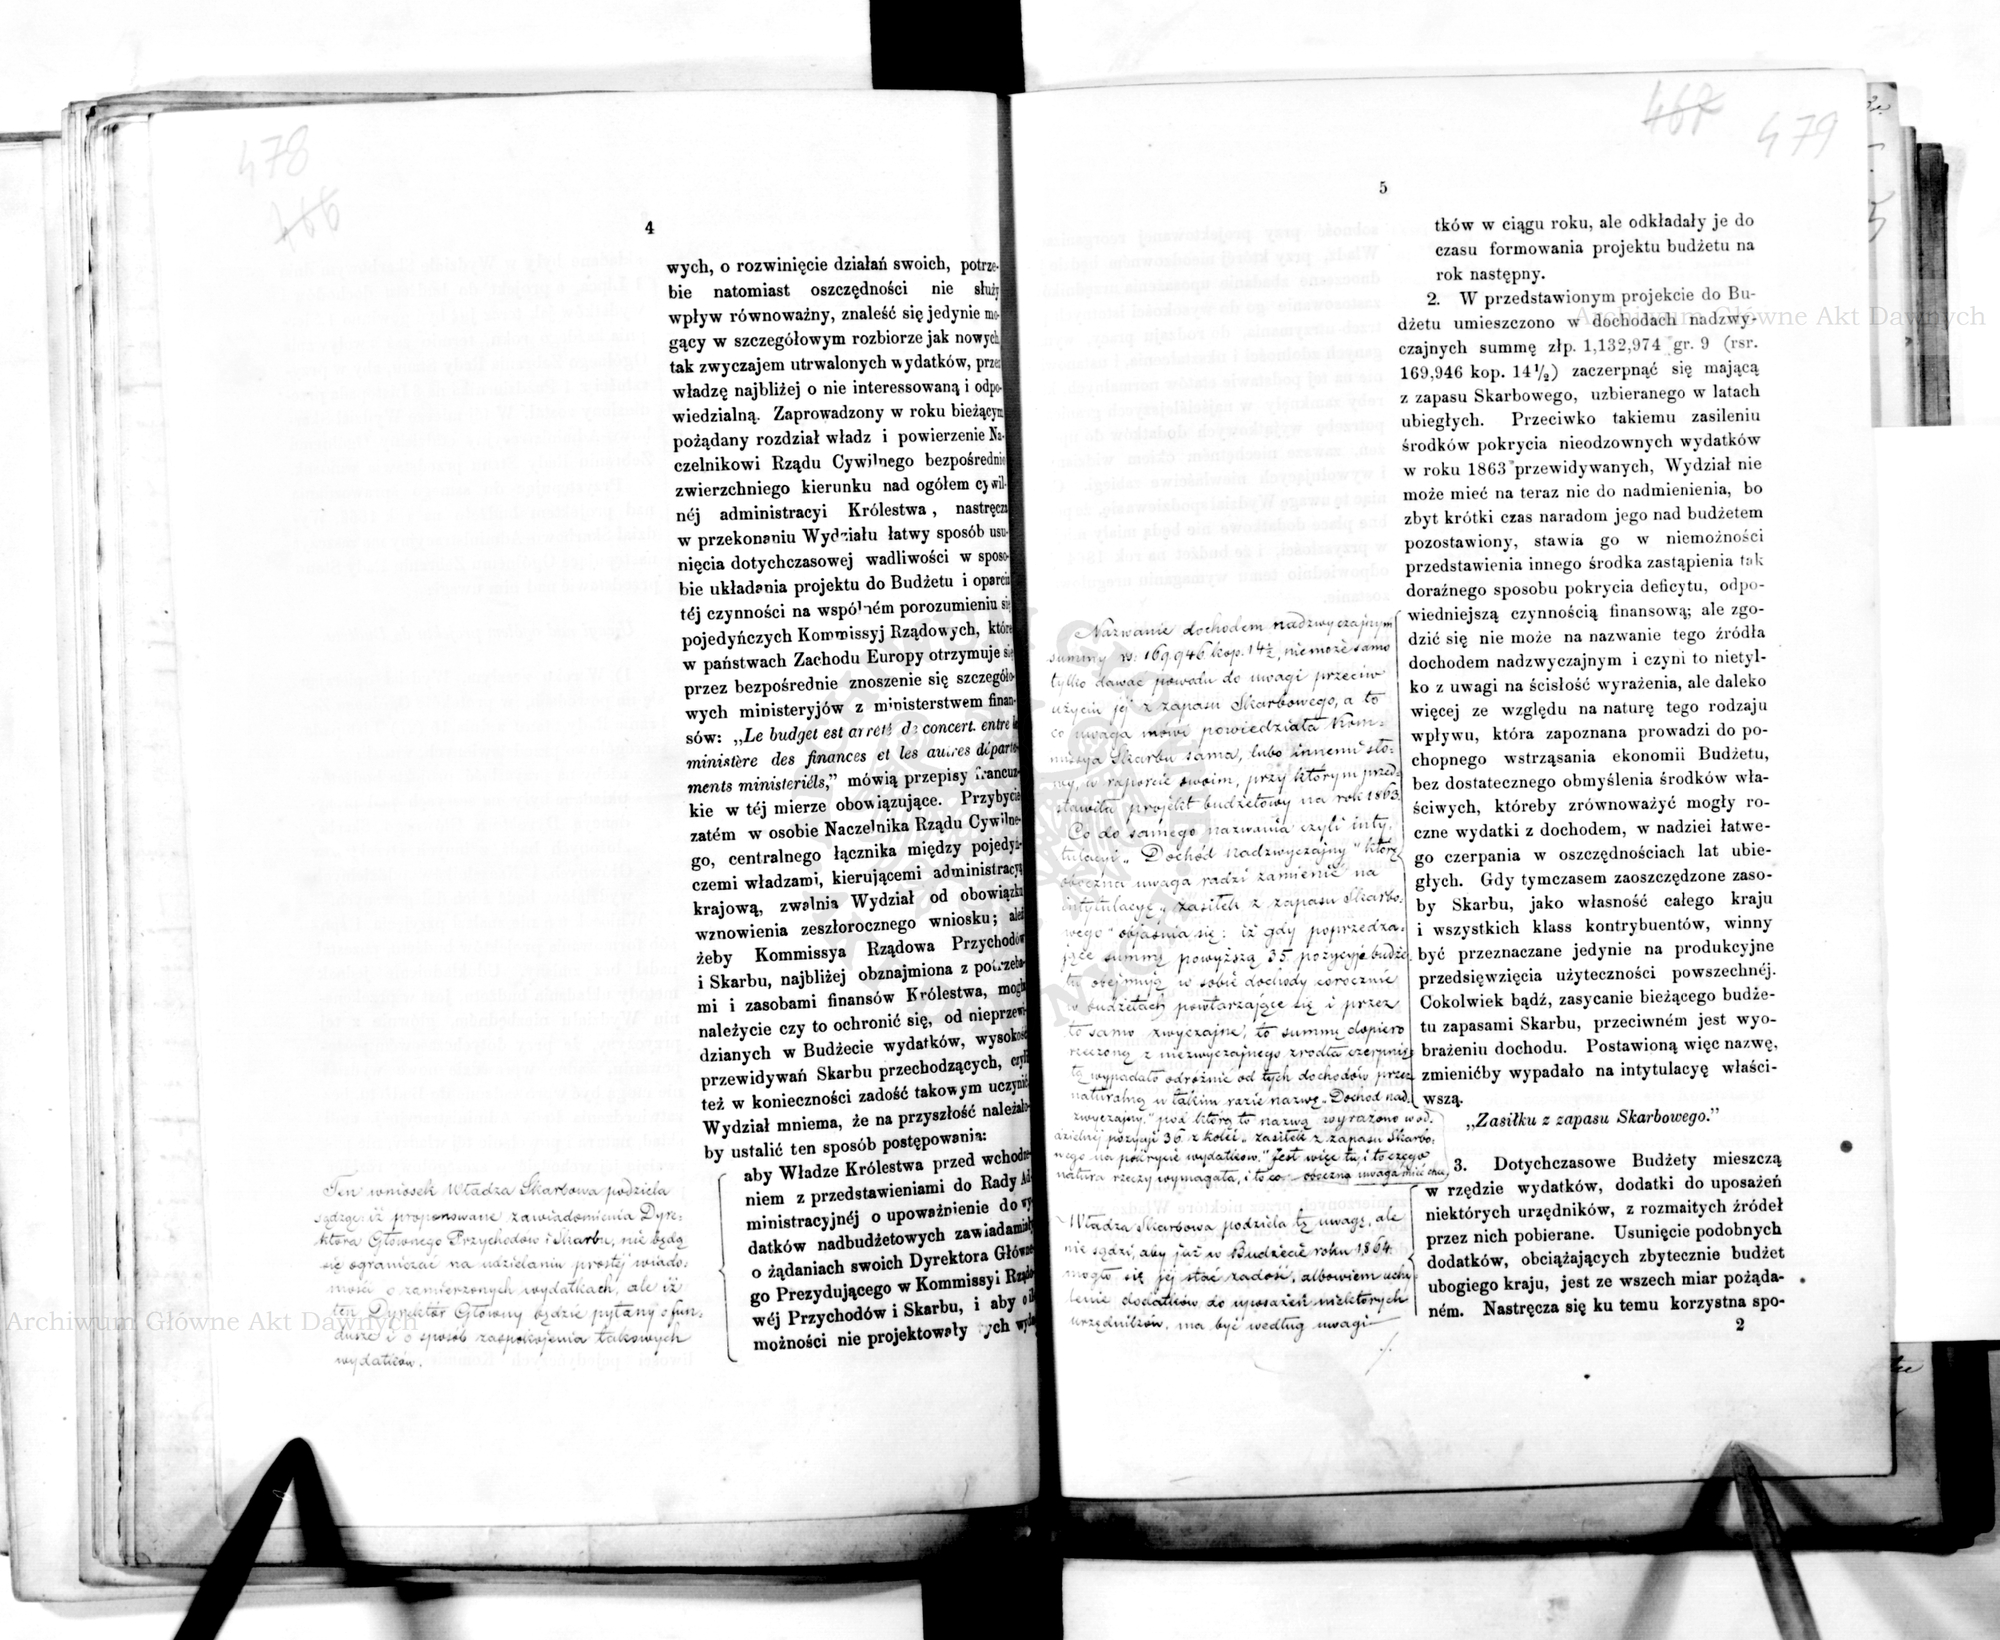 478
466
4
wych, o rozwinięcie działań swoich, potrze-
bie natomiast oszczędności nie służy
wpływ równoważny, znaleść się jedynie mo-
gący w szczegółowym rozbiorze jak nowych
tak zwyczajem utrwalonych wydatków, przez
władzę najbliżej o nie interessowaną i odpo-
wiedzialną. Zaprowadzony w roku bieżącym
pożądany rozdział władz i powierzenie Na-
czelnikowi Rządu Cywilnego bezpośrednio
zwierzchniego kierunku nad ogółem cywil-
néj administracyi Królestwa, nastręcza
w przekonaniu Wydziału łatwy sposób usu-
nięcia dotychczasowej wadliwości w sposo-
bie układania projektu do Budżetu i oparcia
téj czynności na wspólném porozumieniu się
pojedyńczych Kommissyj Rządowych, które
w państwach Zachodu Europy otrzymuje się
przez bezpośrednie znoszenie się szczegóło-
wych ministeryjów z ministerstwem finan-
sów: „Le budget est arrêté de concert. entre le
ministère des finances et les autres départe-
ments ministeriéls,” mówią przepisy francuz-
kie w téj mierze obowiązujące. Przybycie
zatém w osobie Naczelnika Rządu Cywilne-
go, centralnego łącznika między pojedyń-
czemi władzami, kierującemi administracyą
krajową, zwalnia Wydział od obowiązku
wznowienia zeszłorocznego wniosku; ależ
żeby Kommissya Rządowa Przychodów
i Skarbu, najbliżej obznajmiona z potrzeba-
mi i zasobami finansów Królestwa, mogła
należycie czy to ochronić się, od nieprzewi-
dzianych w Budżecie wydatków, wysokość
przewidywań Skarbu przechodzących, czyli
też w konieczności zadość takowym uczynić,
Wydział mniema, że na przyszłość należało-
by ustalić ten sposób postępowania:
aby Władze Królestwa przed wchodze-
niem z przedstawieniami do Rady Ad-
ministracyjnéj o upoważnienie do wy-
datków nadbudżetowych zawiadamiały
o żądaniach swoich Dyrektora Główne-
go Prezydującego w Kommissyi Rządo-
wéj Przychodów i Skarbu, i aby o ile
możności nie projektowały tych wyda-
Ten wniosek Władza Skarbowa podziela
sądząc iż proponowane zawiadomienia Dyre-
ktora Głównego Przychodów i Skarbu, nie będą
się ograniczać na udzielaniu prostej wiado-
mości o zamierzonych wydatkach, ale iż
ten Dyrektor Główny będzie pytany o fun-
dusze i o sposób zaspokojenia takowych
wydatków.
467
479
5
tków w ciągu roku, ale odkładały je do
czasu formowania projektu budżetu na
rok następny.
2. W przedstawionym projekcie do Bu-
dżetu umieszczono w dochodach nadzwy-
czajnych summę złp. 1,132,974 gr. 9 (rsr.
169,946 kop. 14½) zaczerpnąć się mającą
z zapasu Skarbowego, uzbieranego w latach
ubiegłych. Przeciwko takiemu zasileniu
środków pokrycia nieodzownych wydatków
w roku 1863 przewidywanych, Wydział nie
może mieć na teraz nic do nadmienienia, bo
zbyt krótki czas naradom jego nad budżetem
pozostawiony, stawia go w niemożności
przedstawienia innego środka zastąpienia tak
doraźnego sposobu pokrycia deficytu, odpo-
wiedniejszą czynnością finansową; ale zgo-
dzić się nie może na nazwanie tego źródła
dochodem nadzwyczajnym i czyni to nietyl-
ko z uwagi na ścisłość wyrażenia, ale daleko
więcej ze względu na naturę tego rodzaju
wpływu, która zapoznana prowadzi do po-
chopnego wstrząsania ekonomii Budżetu,
bez dostatecznego obmyślenia środków wła-
ściwych, któreby zrównoważyć mogły ro-
czne wydatki z dochodem, w nadziei łatwe-
go czerpania w oszczędnościach lat ubie-
głych. Gdy tymczasem zaoszczędzone zaso-
by Skarbu, jako własność całego kraju
i wszystkich klass kontrybuentów, winny
być przeznaczane jedynie na produkcyjne
przedsięwzięcia użyteczności powszechnéj.
Cokolwiek bądź, zasycanie bieżącego budże-
tu zapasami Skarbu, przeciwném jest wyo-
brażeniu dochodu. Postawioną więc nazwę,
zmienićby wypadało na intytulacyę właści-
wszą.
„Zasiłku z zapasu Skarbowego.”
3. Dotychczasowe Budżety mieszczą
w rzędzie wydatków, dodatki do uposażeń
niektórych urzędników, z rozmaitych źródeł
przez nich pobierane. Usunięcie podobnych
dodatków, obciążających zbytecznie budżet
ubogiego kraju, jest ze wszech miar pożąda-
ném. Nastręcza się ku temu korzystna spo-
2
Nazwanie dochodem nadzwyczajnym
summy rs: 169,946 kop. 14½, nie może samo
tylko dawać powodu do uwagi przeciw
użyciu jej z zapasu Skarbowego, a to
co uwaga mówi powiedziała Kom-
missya Skarbu sama, lubo innemi sło-
wy, w raporcie swoim, przy którym przed-
stawiła projekt budżetowy na rok 1863.
Co do samego nazwania czyli inty-
tulacyi „Dochód nadzwyczajny” którą
oboczna uwaga radzi zamienić na
intytulacyę „zasiłek z zapasu Skarbo-
wego” objaśnia się: iż gdy poprzedza-
jące summę powyższą 35 pozycyje budże-
tu obejmują w sobie dochody corocznie
w budżetach powtarzające się i przez
to samo zwyczajne, to summę dopiero
rzeczoną z niezwyczajnego źródła czerpnię-
tą wypadało odróżnić od tych dochodów przez
naturalną w takim razie nazwę „Dochód nad-
zwyczajny,” pod którą to nazwą wyrażono w od-
dzielnej pozycyi 36 z kolei „zasiłek z zapasu Skarbo-
wego na pokrycie wydatków.” Jest więc tu i to czego
natura rzeczy wymagała, i to co oboczna uwaga mieć chce.
Władza Skarbowa podziela tę uwagę, ale
nie sądzi, aby już w Budżecie roku 1864
mogło się jej stać zadość, albowiem uchy-
lenie dodatków do uposażeń niektórych
urzędników, ma być według uwagi
Archiwum Główne Akt Dawnych
Archiwum Główne Akt Dawnych